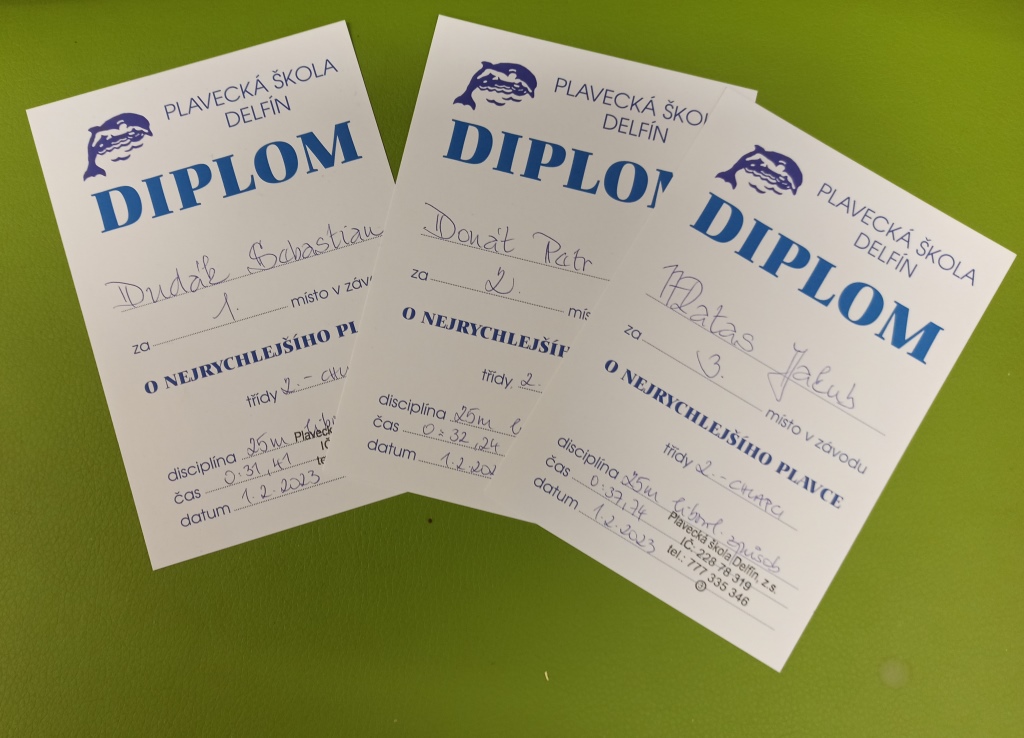 PLAVECKÁ ŠKOLA
DELFÍN
DIPLOM
Dudák Sebastian
za 1. místo v závo
O NEJRYCHLEJŠÍHO PL
třídy 2. - CHL
disciplína 25m libo
čas 0:31,41
datum 1.2.2023
Plaveck
IČ
te
PLAVECKÁ ŠKOL
DELFÍN
DIPLOM
Donát Petr
za 2. mís
O NEJRYCHLEJŠÍH
třídy 2.
disciplína 25m l
čas 0:32,24
datum 1.2.202
PLAVECKÁ ŠKOLA
DELFÍN
DIPLOM
Matas Jakub
za 3. místo v závodu
O NEJRYCHLEJŠÍHO PLAVCE
třídy 2. - CHLAPCI
disciplína 25m libovol. způsob
čas 0:37,74
datum 1.2.2023
Plavecká škola Delfín, z.s.
IČ: 228 78 319
tel.: 777 335 346
3